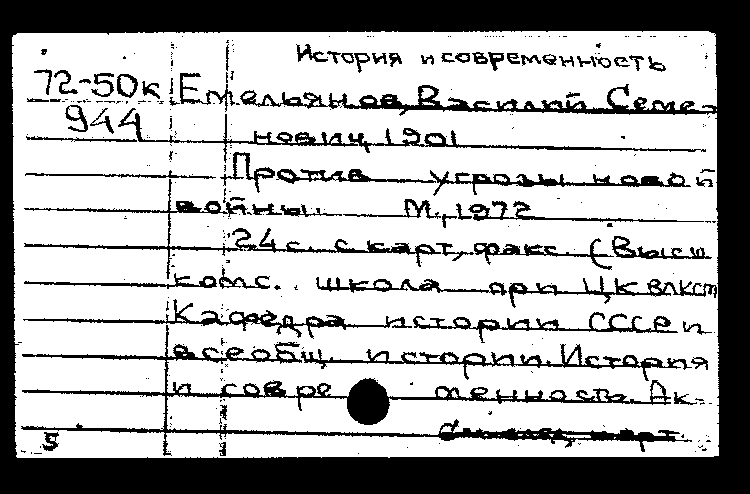 История и современность
72-50к Емельянов, Василий Семе-
944 нович, 1901
Против угрозы новой
войны. М., 1972
24 с. с карт, факс. (Высш
комс. школа при ЦК ВЛКСМ
Кафедра истории СССР и
всеобщ. истории. История
и совре менность. Ак-
См. след. карт.
5